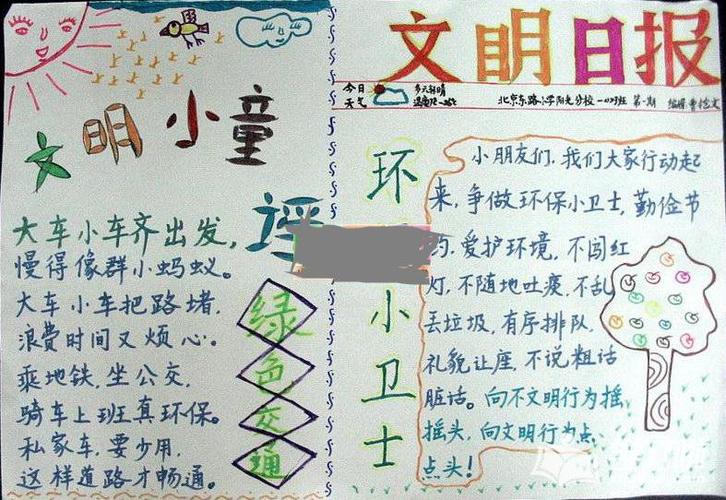 文明小童
大车小车齐出发，
慢得像群小蚂蚁。
大车小车把路堵，
浪费时间又烦心。
乘地铁，坐公交，
骑车上班真环保。
私家车，要少用，
这样道路才畅通。
绿
色
交
通
文明日报
今日
天气
多云转晴
北京东路小学阳光分校
第一期
环
小
卫
士
小朋友们，我们大家行动起
来，争做环保小卫士，勤俭节
约，爱护环境，不闯红
灯，不随地吐痰，不乱
丢垃圾，有序排队，
礼貌让座，不说粗话
脏话。向不文明行为摇
摇头，向文明行为点
点头！